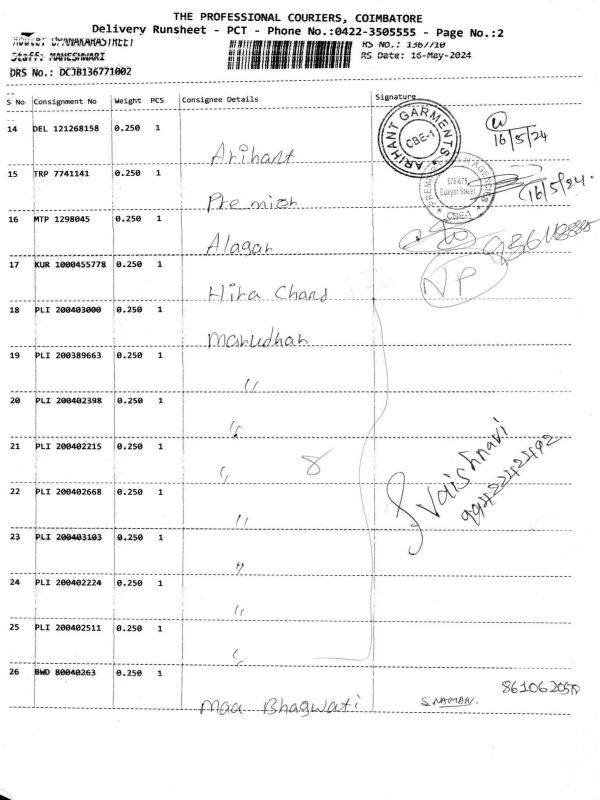 THE PROFESSIONAL COURIERS, COIMBATORE
Delivery Runsheet - PCT - Phone No.:0422-3505555 - Page No.:2
Staff: MAHESHWARI
RS No.: 1367710
RS Date: 16-May-2024
DRS No.: DCJB136771002
S No Consignment No Weight PCS Consignee Details Signature
14 DEL 121268158 0.250 1 Arihant
ARIHANT GARMENTS CBE-1
16/5/24
15 TRP 7741141 0.250 1 Premier
CBE-1
16/5/24.
16 MTP 1298045 0.250 1 Alagar
17 KUR 1000455778 0.250 1 Hira Chand NP
18 PLI 200403000 0.250 1 Marudhar
19 PLI 200389663 0.250 1 "
20 PLI 200402398 0.250 1 "
21 PLI 200402215 0.250 1 " 8
Vaishnavi
22 PLI 200402668 0.250 1 "
23 PLI 200403103 0.250 1 "
24 PLI 200402224 0.250 1 "
25 PLI 200402511 0.250 1 "
26 BWD 80040263 0.250 1 Maa Bhagwati S.NAMAN.